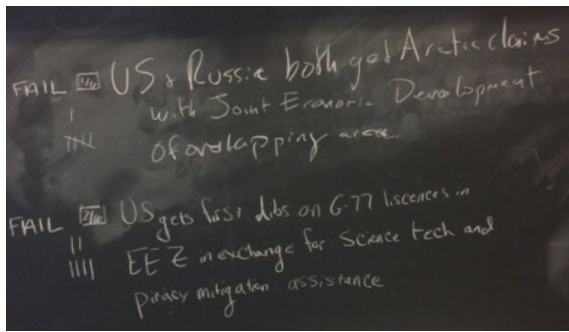 FAIL 1/6 US & Russia both get Arctic claims
with Joint Economic Development
of overlapping area.
FAIL 2/6 US gets first dibs on G-77 liscences in
EEZ in exchange for science tech and
piracy mitigation assistance